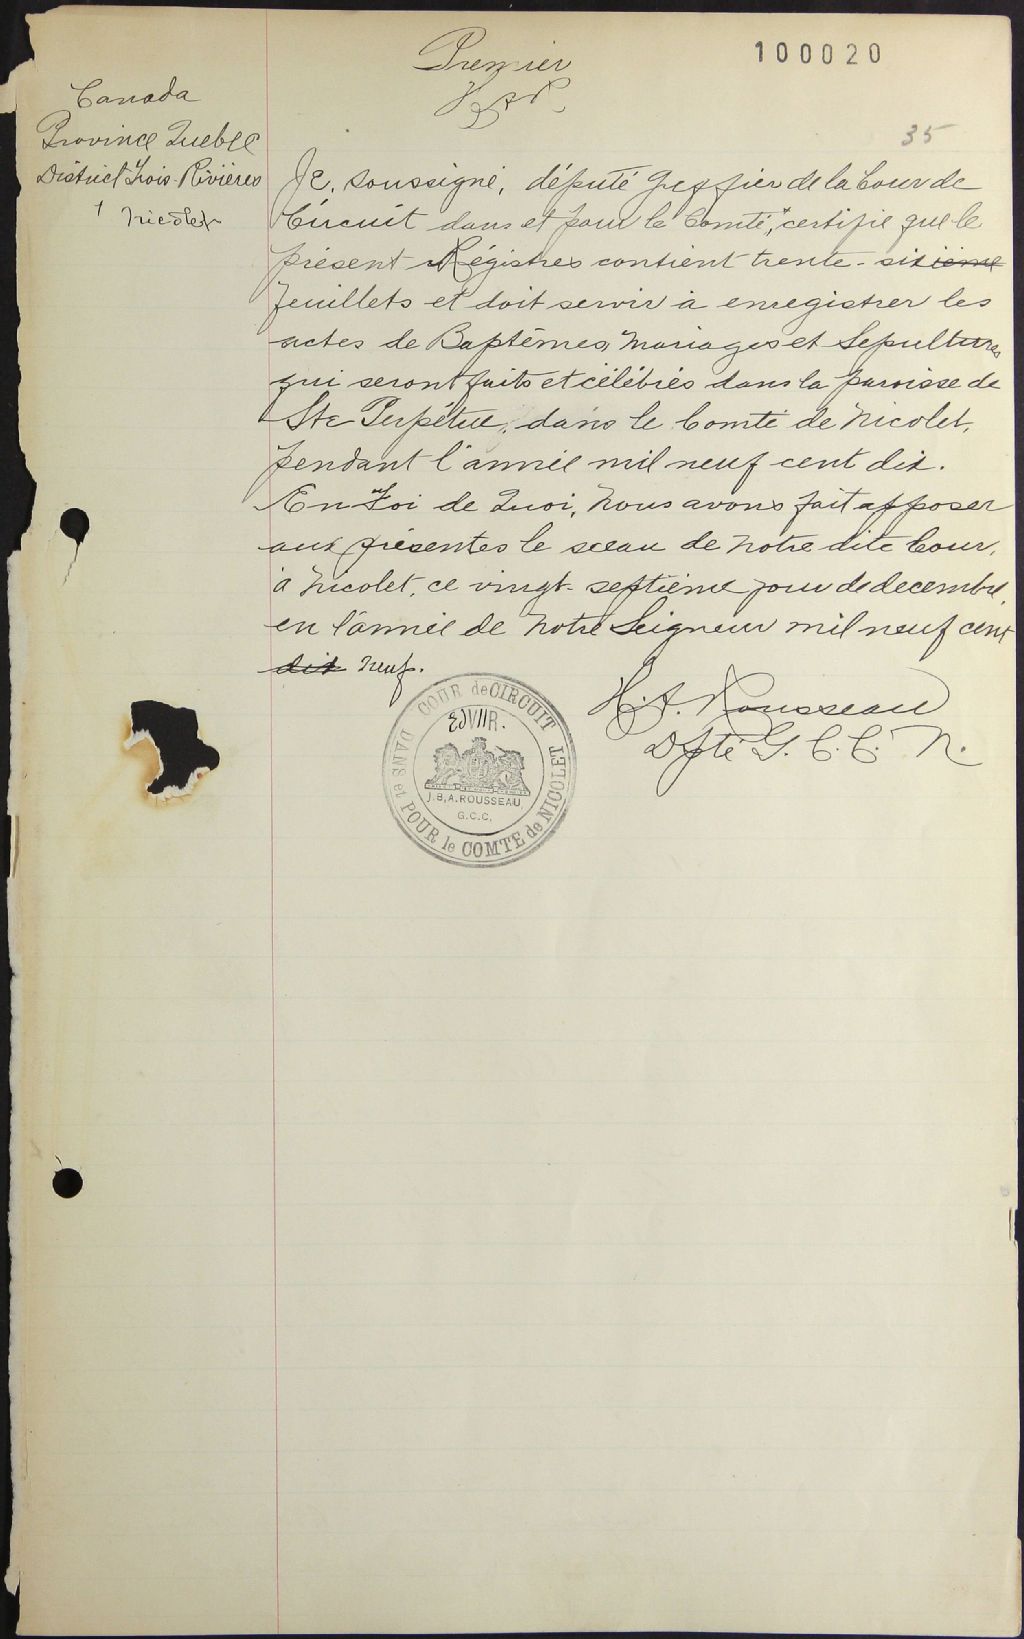 Premier
H.A.R.
100020
35
Canada
Province Quebec
District Trois-Rivières
+ Nicolet
Je, soussigné, député greffier de la Cour de
Circuit dans et pour le Comté,+ certifie que le
présent Régistres contient trente-sixième
feuillets et doit servir à enregistrer les
actes de Baptêmes, Mariages et Sepultures
qui seront faits et célébrés dans la paroisse de
Ste Perpétue, dans le Comté de Nicolet,
pendant l'année mil neuf cent dix.
En Foi de Quoi, Nous avons fait apposer
aux présentes le sceau de notre dite Cour,
à Nicolet, ce vingt-septième jour de decembre,
en l'année de Notre Seigneur mil neuf cent
dix neuf.
H. A. Rousseau
Dpté G. C. C. N.
COUR de CIRCUIT
DANS et POUR le COMTE de NICOLET
J.B.A. ROUSSEAU,
G.C.C.